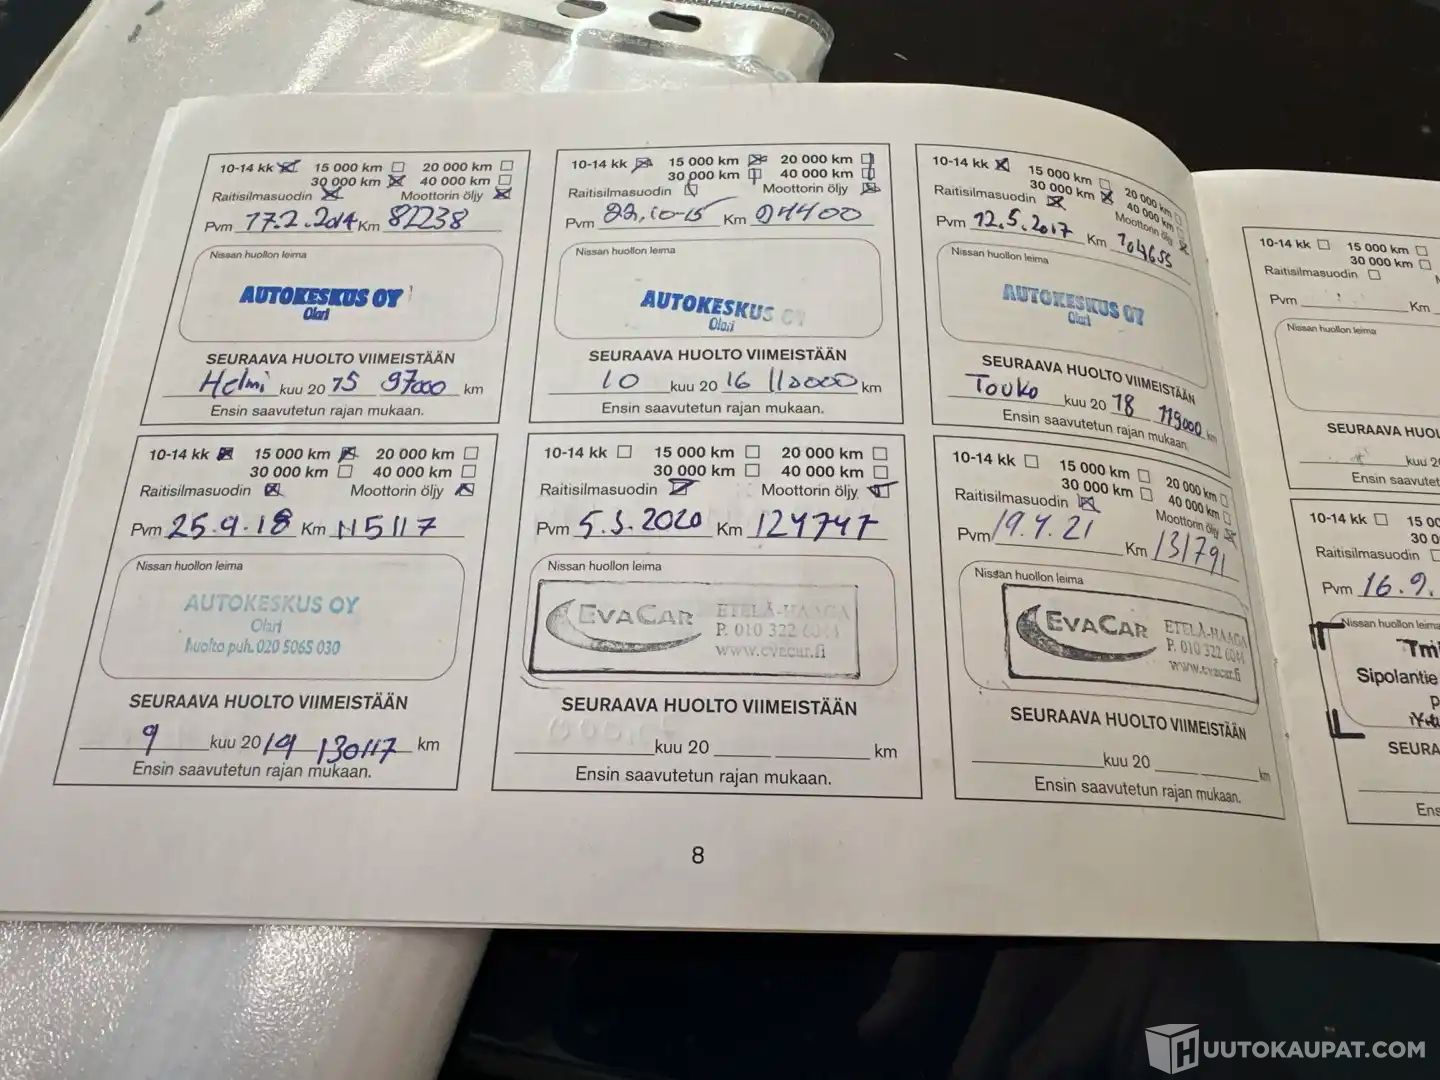 10-14 kk 15 000 km 20 000 km
30 000 km 40 000 km
Raitisilmasuodin Moottorin öljy
Pvm 17.2.2014 Km 82238
Nissan huollon leima
AUTOKESKUS OY
Olari
SEURAAVA HUOLTO VIIMEISTÄÄN
Helmi kuu 20 15 97000 km
Ensin saavutetun rajan mukaan.
10-14 kk 15 000 km 20 000 km
30 000 km 40 000 km
Raitisilmasuodin Moottorin öljy
Pvm 22.10-15 Km 94400
Nissan huollon leima
AUTOKESKUS OY
Olari
SEURAAVA HUOLTO VIIMEISTÄÄN
10 kuu 20 16 110000 km
Ensin saavutetun rajan mukaan.
10-14 kk 15 000 km 20 000 km
30 000 km 40 000 km
Raitisilmasuodin Moottorin öljy
Pvm 12.5.2017 Km 104655
Nissan huollon leima
AUTOKESKUS OY
Olari
SEURAAVA HUOLTO VIIMEISTÄÄN
Touko kuu 20 18 119000 km
Ensin saavutetun rajan mukaan.
10-14 kk 15 000 km
30 000 km
Raitisilmasuodin
Pvm Km
Nissan huollon leima
SEURAAVA HUOL
kuu 2
Ensin saavutet
10-14 kk 15 000 km 20 000 km
30 000 km 40 000 km
Raitisilmasuodin Moottorin öljy
Pvm 25.9.18 Km 115117
Nissan huollon leima
AUTOKESKUS OY
Olari
huolto puh. 020 5065 030
SEURAAVA HUOLTO VIIMEISTÄÄN
9 kuu 20 19 130117 km
Ensin saavutetun rajan mukaan.
10-14 kk 15 000 km 20 000 km
30 000 km 40 000 km
Raitisilmasuodin Moottorin öljy
Pvm 5.3.2020 Km 124747
Nissan huollon leima
EVACAR ETELÄ-HAAGA
P. 010 322 6044
www.evacar.fi
SEURAAVA HUOLTO VIIMEISTÄÄN
kuu 20 km
Ensin saavutetun rajan mukaan.
10-14 kk 15 000 km 20 000 km
30 000 km 40 000 km
Raitisilmasuodin Moottorin öljy
Pvm 19.4.21 Km 131791
Nissan huollon leima
EVACAR ETELÄ-HAAGA
P. 010 322 6044
www.evacar.fi
SEURAAVA HUOLTO VIIMEISTÄÄN
kuu 20 km
Ensin saavutetun rajan mukaan.
10-14 kk 15 00
30 0
Raitisilmasuodin
Pvm 16.9.
Nissan huollon leima
Tmi
Sipolantie
SEURA
Ens
8
HUUTOKAUPAT.COM